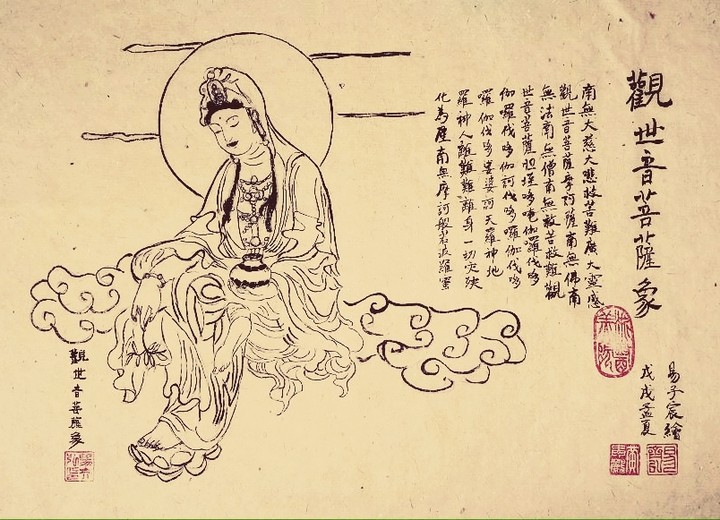 觀世音菩薩象
南無大慈大悲救苦難廣大靈感
觀世音菩薩摩訶薩南無佛南
無法南無僧南無救苦救難觀
世音菩薩怛垤哆唵伽囉伐哆
伽囉伐哆伽訶伐哆囉伽伐哆
囉伽伐哆娑婆訶天羅神地
羅神人離難難離身一切災殃
化為塵南無摩訶般若波羅蜜
易子宸繪
戊戌孟夏
觀世音菩薩象